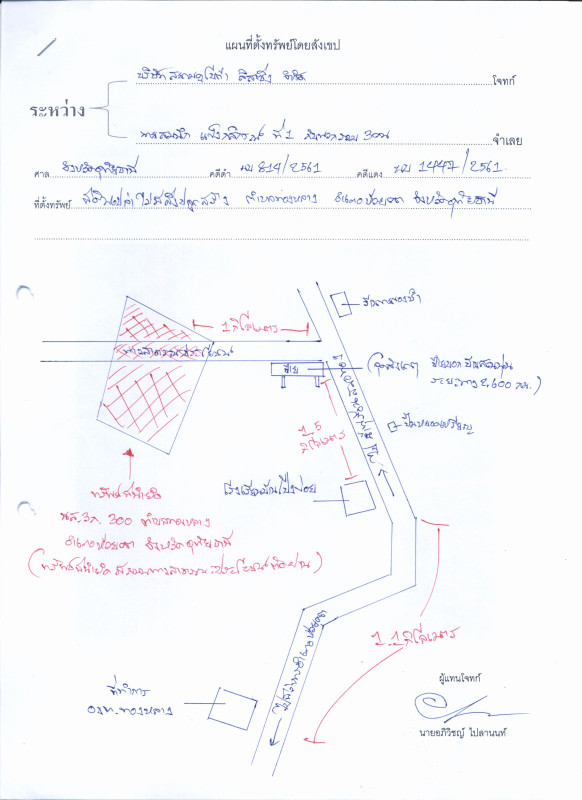 แผนที่ตั้งทรัพย์โดยสังเขป
บริษัท สยามคูโบต้า ลีสซิ่ง จำกัด โจทก์
ระหว่าง
ที่ 1 กับพวกรวม 3 คน จำเลย
ศาล จังหวัดอุทัยธานี คดีดำ ผบ 814/2561 คดีแดง ผบ 1447/2561
ที่ตั้งทรัพย์ ที่ดินเปล่าไม่มีสิ่งปลูกสร้าง ตำบลทองหลาง อำเภอห้วยคต จังหวัดอุทัยธานี
1 กิโลเมตร
ทางสาธารณประโยชน์
ป้าย
ระยะทาง 2,600 ม.)
1.5
กิโลเมตร
โรงเรียนบ้านโป่งข่อย
ทรัพย์ที่ยึด
น.ส.3ก. 300 ตำบลทองหลาง
อำเภอห้วยคต จังหวัดอุทัยธานี
(ทรัพย์ที่ยึดมีถนนทางสาธารณประโยชน์ตัดผ่าน)
1.1 กิโลเมตร
ไปที่ว่าการอำเภอห้วยคต
ที่ทำการ
อบต.ทองหลาง
ผู้แทนโจทก์
นายอภิวิชญ์ ไปลานนท์